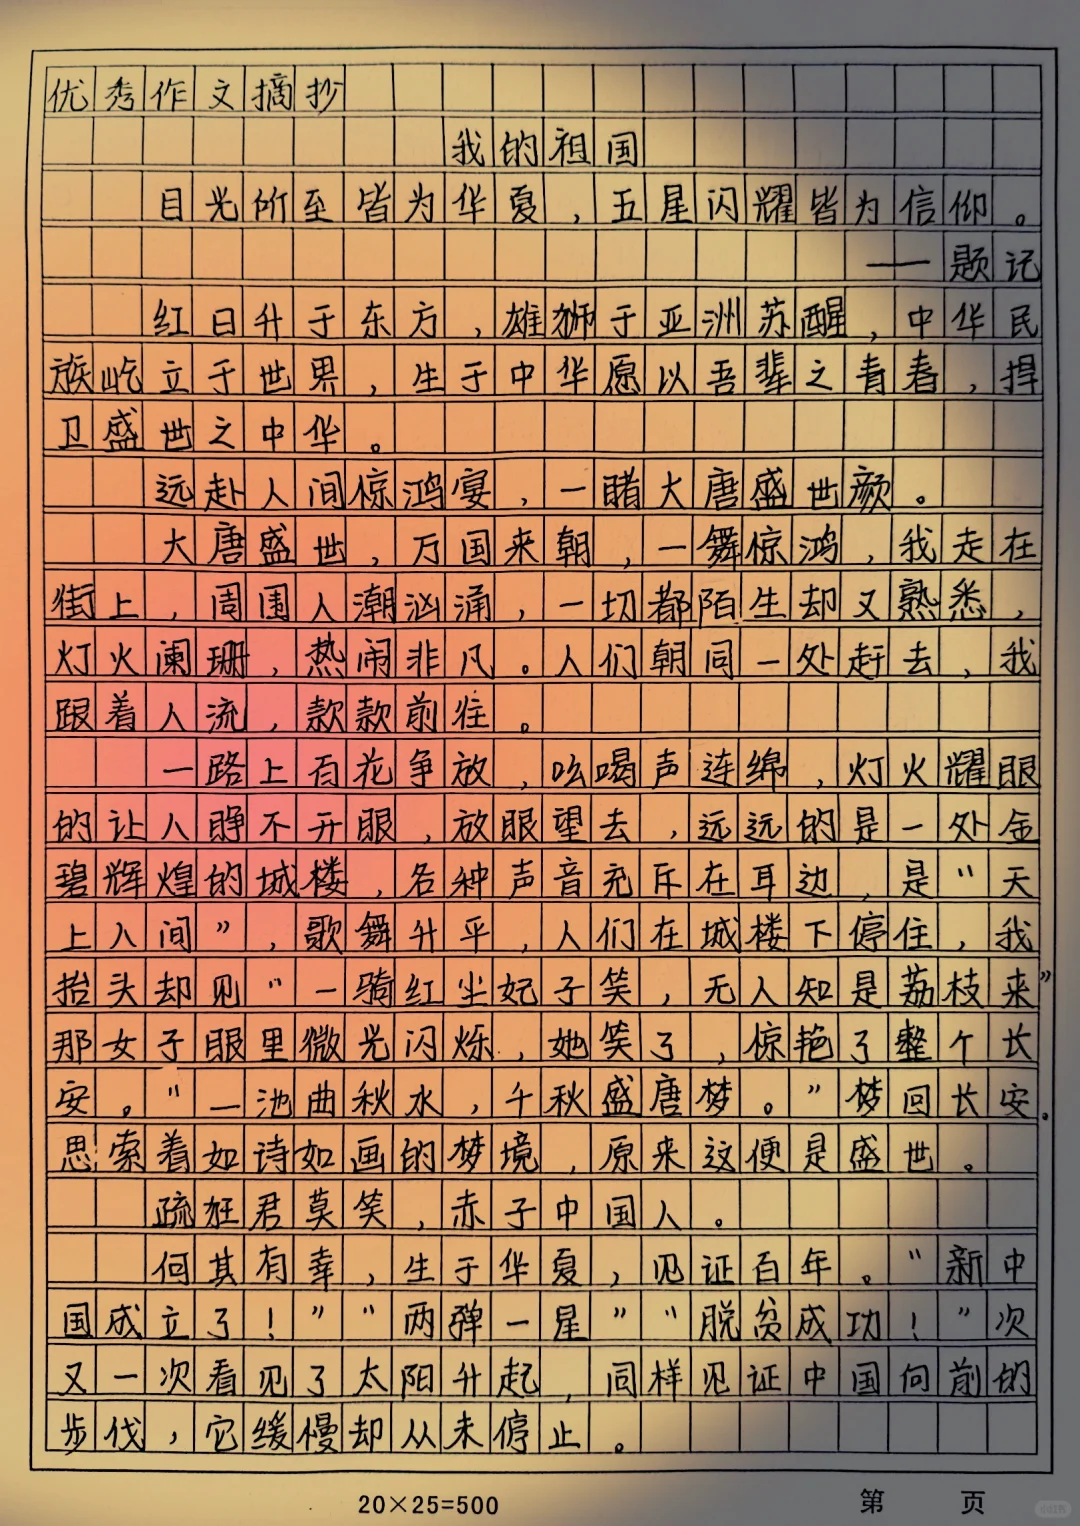 优秀作文摘抄
我的祖国
目光所至皆为华夏，五星闪耀皆为信仰。
——题记
红日升于东方，雄狮于亚洲苏醒，中华民
族屹立于世界，生于中华愿以吾辈之青春，捍
卫盛世之中华。
远赴人间惊鸿宴，一睹大唐盛世颜。
大唐盛世，万国来朝，一舞惊鸿，我走在
街上，周围人潮汹涌，一切都陌生却又熟悉，
灯火阑珊，热闹非凡。人们朝同一处赶去，我
跟着人流，款款前往。
一路上百花争放，吆喝声连绵，灯火耀眼
的让人睁不开眼，放眼望去，远远的是一处金
碧辉煌的城楼，各种声音充斥在耳边，是“天
上人间”，歌舞升平，人们在城楼下停住，我
抬头却见“一骑红尘妃子笑，无人知是荔枝来”
那女子眼里微光闪烁，她笑了，惊艳了整个长
安。“一池曲秋水，千秋盛唐梦。”梦回长安.
思索着如诗如画的梦境，原来这便是盛世。
疏狂君莫笑，赤子中国人。
何其有幸，生于华夏，见证百年。“新中
国成立了！”“两弹一星”“脱贫成功！”次
又一次看见了太阳升起，同样见证中国向前的
步伐，它缓慢却从未停止。
20×25=500
第 页